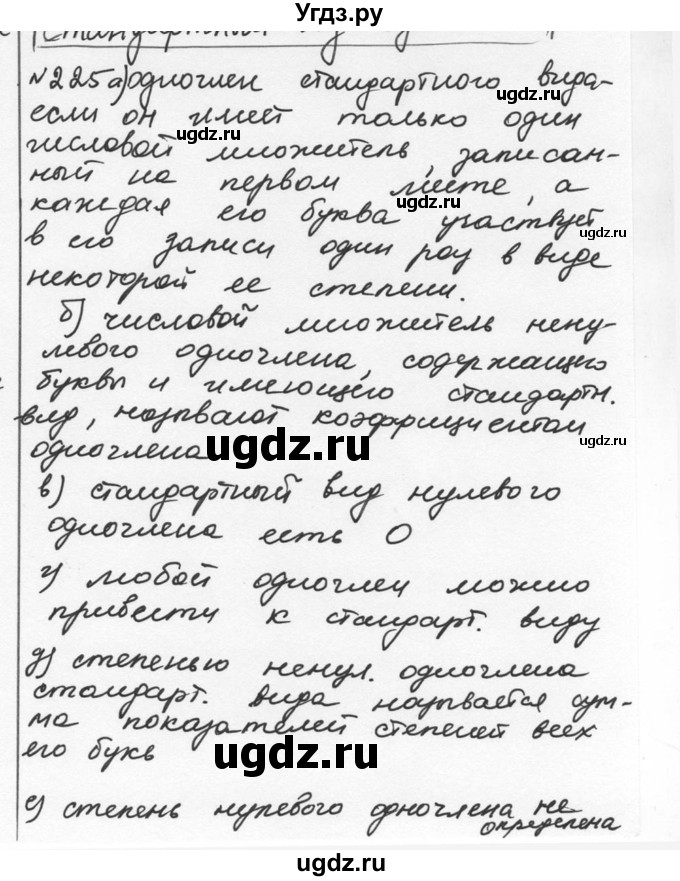 Угдз.ру
№225 а) одночлен стандартного вида
ugdz.ru
если он имеет только один
ugdz.ru
числовой множитель, записан-
ный на первом месте, а
каждая его буква участвует
ugdz.ru
ugdz.ru
в его записи один раз в виде
некоторой ее степени.
б) числовой множитель нену-
левого одночлена, содержащего
буквы и имеющего стандартн.
вид, называют коэффициентом
ugdz.ru
одночлена
ugdz.ru
в) стандартный вид нулевого
одночлена есть 0
г) любой одночлен можно
привести к стандарт. виду
д) степенью ненул. одночлена
стандарт. вида называется сум-
ма показателей степеней всех
его букв
ugdz.ru
е) степень нулевого одночлена не
определена
ugdz.ru